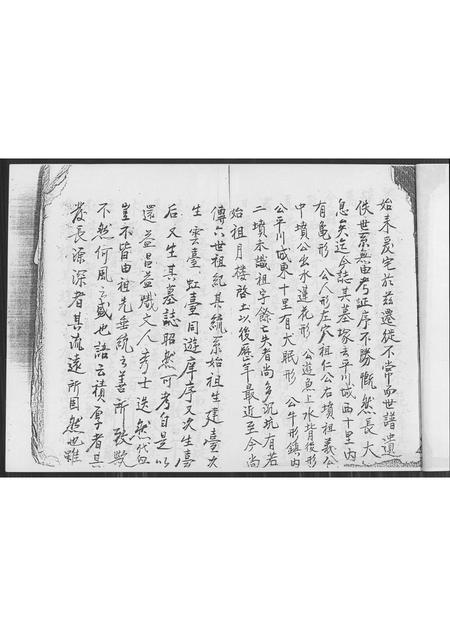 始來爰宅於茲遷徙不常而世譜遺
佚世系無由考証序不勝慨然長大
息矣迄今誌其墓塚云平川城西十里內
有亀形 公人形左穴祖仁公右墳祖義公
中墳公出水蓮花形 公遊魚上水背後形
公平川城東十里有大眠形 公牛形鎮內
二墳未識祖字餘亡失者尚多沉坑有若
始祖月樓啓土以後歷年最近至今尚
傳六世祖紀其統系始祖生建臺次
生雲臺 虹臺同遊庠序又次生喜
后又生其墓誌昭然可考自是以
還益昌益熾文人秀士迭然代
豈不皆由祖先垂統之善所致歟
不然何風之盛也語云積厚者其
發長源深者其流遠所固然也雖